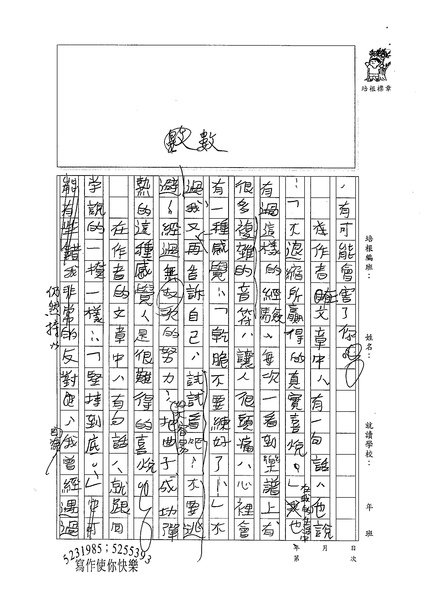 培根標章
培根編班：
姓名：
就讀學校：
年 班
年 月 日
第 次
數
，有可能會害了你。
在作者文章中，有一句話，他說
：「不退縮所贏得的真實喜悅。」我也
有過這樣的經驗，每次一看到樂譜上有
很多複雜的音符，讓人很頭痛，心裡會
有一種感覺：「乾脆不要練好了！」不
過我又再告訴自己，試試看吧！不要逃
避！經過無數次的努力，把曲子成功彈
熟的這種感覺，是很難得的喜悅。
在作者的文章中，有句話，就跟回
學說的一模一樣：「堅持到底。」
能有些錯，我非常的反對他，我曾經遇過
仍然持
5231985；5255393
寫作使你快樂